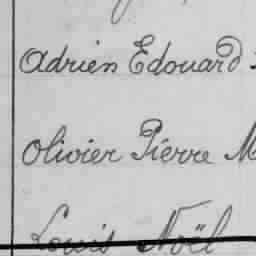 Adrien Edouard
Olivier Pierre M
Louis Noël